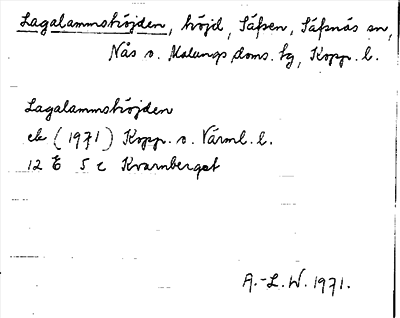 Lagalammshöjden, höjd, Säfsen, Säfsnäs sn,
Nås o. Malungs doms. tg, Kopp. l.
Lagalammshöjden
ek (1971) Kopp. o. Värml. l.
12 E 5 c Kvarnberget
A.-L.W. 1971.